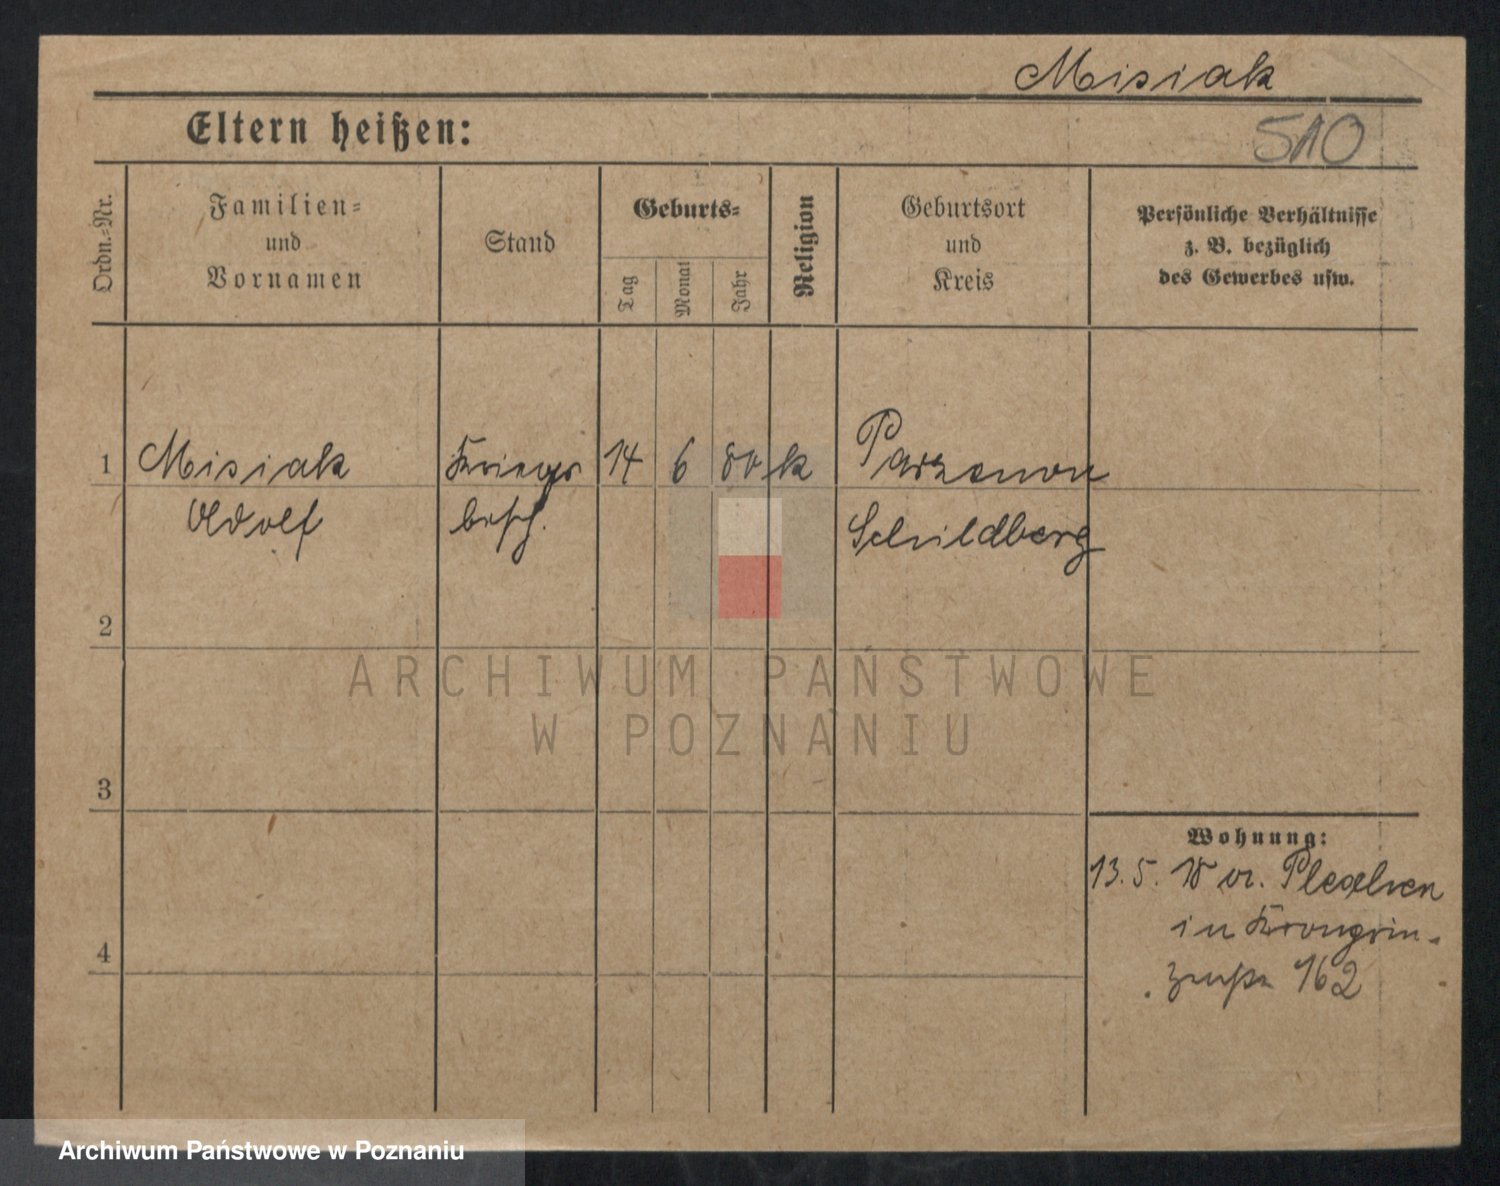 Misiak
Eltern heißen:
510
Ordn.-Nr.
Familien-
und
Vornamen
Stand
Geburts-
Tag
Monat
Jahr
Religion
Geburtsort
und
Kreis
Persönliche Verhältnisse
z. B. bezüglich
des Gewerbes usw.
1
Misiak
Kriegs
14
6
80
k
Parzenow
Adolf
besch.
Schildberg
2
ARCHIWUM PAŃSTWOWE
W POZNANIU
3
Wohnung:
13. 5. 18 v. Pleschen
in Kronprin-
zenstr. 162
4
Archiwum Państwowe w Poznaniu